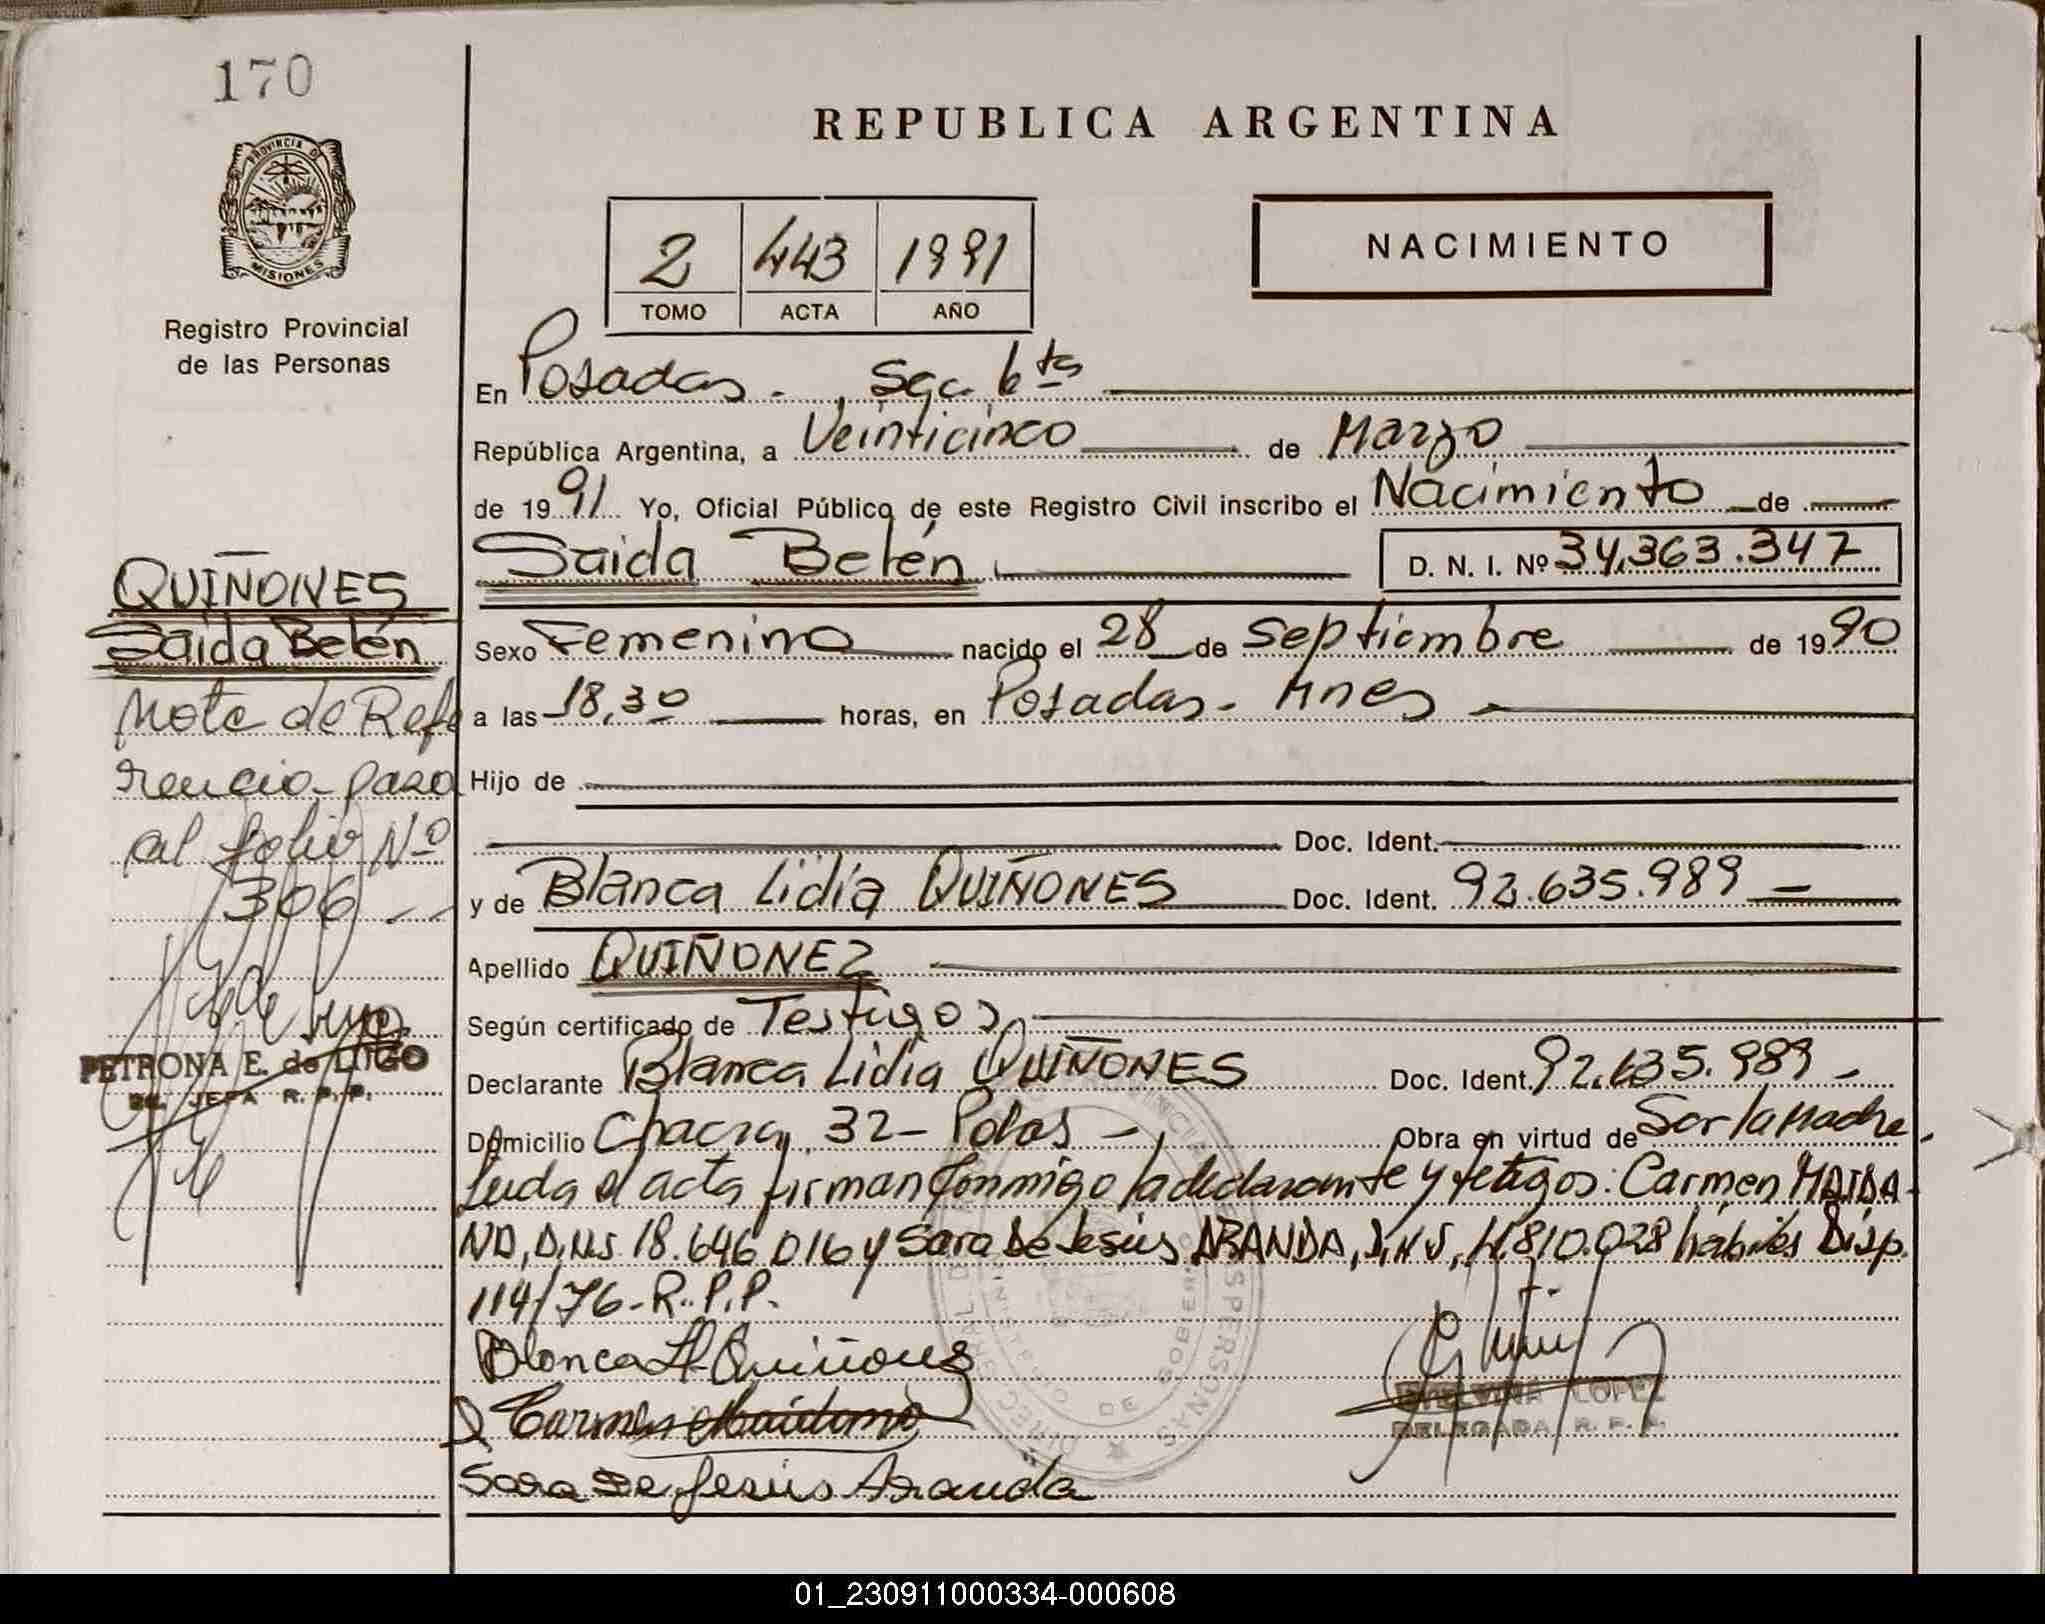 170
PROVINCIA DE
MISIONES
Registro Provincial
de las Personas
REPUBLICA ARGENTINA
2 443 1991
TOMO ACTA AÑO
NACIMIENTO
En Posadas - , Sec. 6ta
República Argentina, a Veinticinco de Marzo
de 1991 Yo, Oficial Público de este Registro Civil inscribo el Nacimiento de
Saida Belén D. N. I. Nº 34.363.347
Sexo Femenino nacido el 28 de Septiembre de 1990
a las 18,30 horas, en Posadas - Mnes
Hijo de
Doc. Ident.
y de Blanca Lidia QUIÑONES Doc. Ident. 92.635.989
Apellido QUIÑONEZ
Según certificado de Testigos
Declarante Blanca Lidia QUIÑONES Doc. Ident. 92.635.989 -
Domicilio Chacra 32 - Pdas - Obra en virtud de Ser la Madre
Leida el acta firman conmigo la declarante y testigos: Carmen MAIDA-
NO, D.N.I. 18.646.016 y Sara De Jesús ARANDA, D.N.I. 4.810.028 hábiles Disp.
114/76 - R.P.P.
Blanca L. Quiñones
Carmen Maidano
Sara De Jesús Aranda
LOPEZ
DELEGADA R. P. P.
QUIÑONES
Saida Belén
Nota de Refe
rencia - pasa
al folio Nº
306
PETRONA E. de LUGO
JEFA R. P. P.
01_230911000334-000608